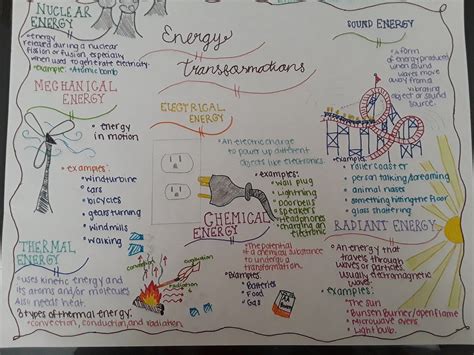 NUCLEAR
ENERGY
energy
released during a nuclear
fission or fusion, especially
when used to generate electricity.
example: Atomic bomb
Energy
Transformations
SOUND ENERGY
A form
of energy produced
when sound
waves move
away from a
vibrating
object or sound
source.
MECHANICAL
ENERGY
energy
in motion
examples:
windturbine
cars
bicycles
gears turning
windmills
walking
ELECTRICAL
ENERGY
An electric charge
to power up different
objects like electronics.
examples:
wall plug
lightning
doorbells
speakers
headphones
charging an
electronic
examples:
roller coaster
person talking/screaming
animal noises
something hitting the floor
glass shattering
CHEMICAL
ENERGY
The potential
of a chemical substance
to undergo a
transformation.
Examples:
Batteries
Food
Gas
RADIANT ENERGY
An energy that
travels through
waves or particles.
Usually electromagnetic
waves.
examples:
The sun
Bunsen Burner/open flame
Microwave ovens
Light bulb.
THERMAL
ENERGY
uses kinetic energy and
its atoms and/or molecules.
Also need heat.
3 types of thermal energy:
convection, conduction, and radiation.
convection
conduction
radiation